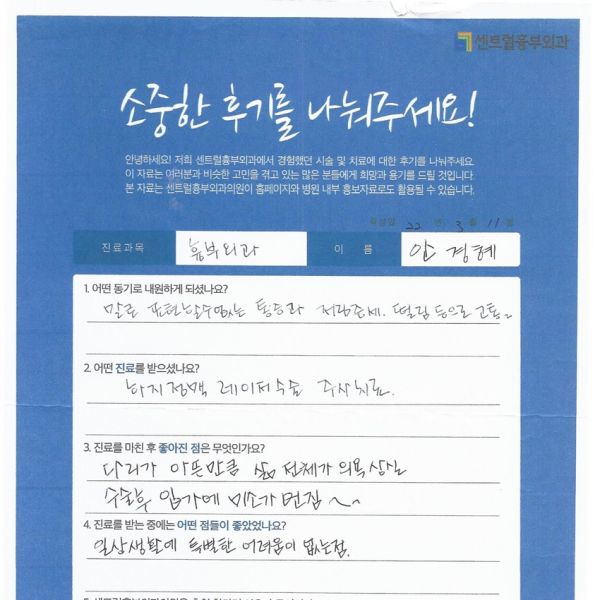 센트럴흉부외과
소중한 후기를 나눠주세요!
안녕하세요! 저희 센트럴흉부외과에서 경험했던 시술 및 치료에 대한 후기를 나눠주세요
이 자료는 여러분과 비슷한 고민을 겪고 있는 많은 분들에게 희망과 용기를 드릴 것입니다
본 자료는 센트럴흉부외과의원이 홈페이지와 병원 내부 홍보자료로도 활용될 수 있습니다.
작성일 22 년 3 월 11 일
진료과목 흉부외과 이 름 안경혜
1. 어떤 동기로 내원하게 되셨나요?
말로 표현할수없는 통증과 저림증세. 떨림 등으로 고통
2. 어떤 진료를 받으셨나요?
하지정맥 레이저수술 주사치료.
3. 진료를 마친 후 좋아진 점은 무엇인가요?
다리가 아픈만큼 삶 전체가 의욕상실
수술후 입가에 미소가 번짐~~
4. 진료를 받는 중에는 어떤 점들이 좋았었나요?
일상생활에 특별한 어려움이 없는점.